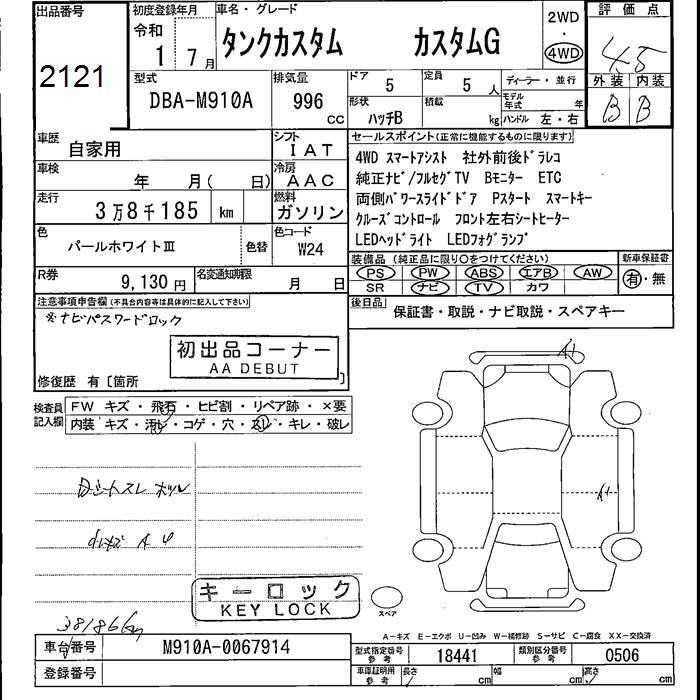 出品番号 初度登録年月 車名・グレード 2WD 評価点
令和
1 7月 タンクカスタム カスタムG ・
4WD 4.5
2121
型式 排気量 ドア 定員 ディーラー・並行 外装 内装
DBA-M910A 996 5 5人 モデル年式 年 B B
cc 形状 ハッチB 積載 kg ハンドル 左・右
車歴 自家用 シフト IAT セールスポイント(正常に機能するものに限ります)
車検 年 月( 日) 冷房 AAC 4WD スマートアシスト 社外前後ドラレコ
純正ナビ/フルセグTV Bモニター ETC
走行 3万8千185 km 燃料 ガソリン 両側パワースライドドア Pスタート スマートキー
クルーズコントロール フロント左右シートヒーター
色 パールホワイトⅢ 色替 色コード W24 LEDヘッドライト LEDフォグランプ
装備品(純正品に限り○をつけてください) 新車保証書
R券 9,130円 名変通知期限 月 日 PS PW ABS エアB AW 有・無
SR ナビ TV カワ
注意事項申告欄(不具合内容等は具体的に記入して下さい) 後日品 保証書・取説・ナビ取説・スペアキー
※ナビパスワードロック
初出品コーナー
AA DEBUT
修復歴 有〔箇所 〕
検査員記入欄 FW キズ・飛石・ヒビ割・リペア跡・×要
内装 キズ・汚れ・コゲ・穴・スレ・キレ・破レ
A1
A1
キーロック
KEY LOCK
スペア
38186km
A-キズ E-エクボ U-凹み W-補修跡 S-サビ C-腐食 XX-交換済
車台番号 M910A-0067914 型式指定番号 参考 18441 類別区分番号 参考 0506
登録番号 車庫証明用 参考 長さ cm 幅 cm 高さ cm